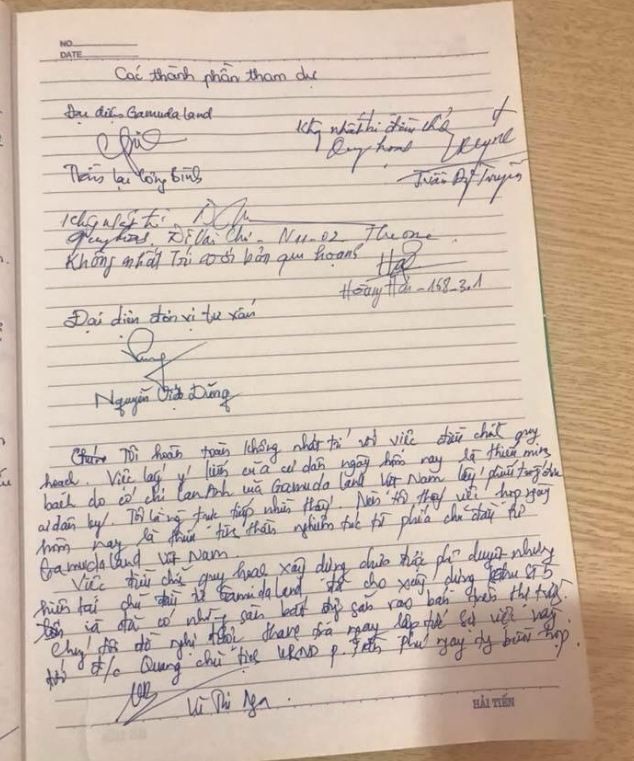 NO.
DATE
Các thành phần tham dự
Đại diện Gamuda Land
Không nhất trí điều chỉnh
Quy hoạch
Trần Lại Công Bình
Không nhất trí
quy hoạch. Di Lái Chi - N11-02 The one
Không nhất trí với bản quy hoạch
Hoàng Hải - 168-3.1
Đại diện đơn vị tư vấn
Nguyễn Việt Dũng
Tôi hoàn toàn không nhất trí với việc điều chỉnh quy
hoạch. Việc lấy ý kiến của cư dân ngày hôm nay là thiếu minh
bạch do có chị Lan Anh của Gamuda Land Việt Nam lấy phiếu trắng cho
cư dân ký. Tôi là người trực tiếp nhìn thấy. Nên tôi thấy việc họp ngày
hôm nay là thiếu tinh thần nghiêm túc từ phía chủ đầu tư
Gamuda Land Việt Nam.
Việc điều chỉnh quy hoạch xây dựng chưa được phê duyệt nhưng
hiện tại chủ đầu tư Gamuda Land, đã cho xây dựng khu ST5
và đã có những sàn bất động sản rao bán trên thị trường.
Chúng tôi đề nghị thanh tra ngay lập tức sự việc này
đ/c Quang chủ tịch UBND p. Trần Phú ngay tại buổi họp.
Vũ Thị Nga.
HẢI TIẾN